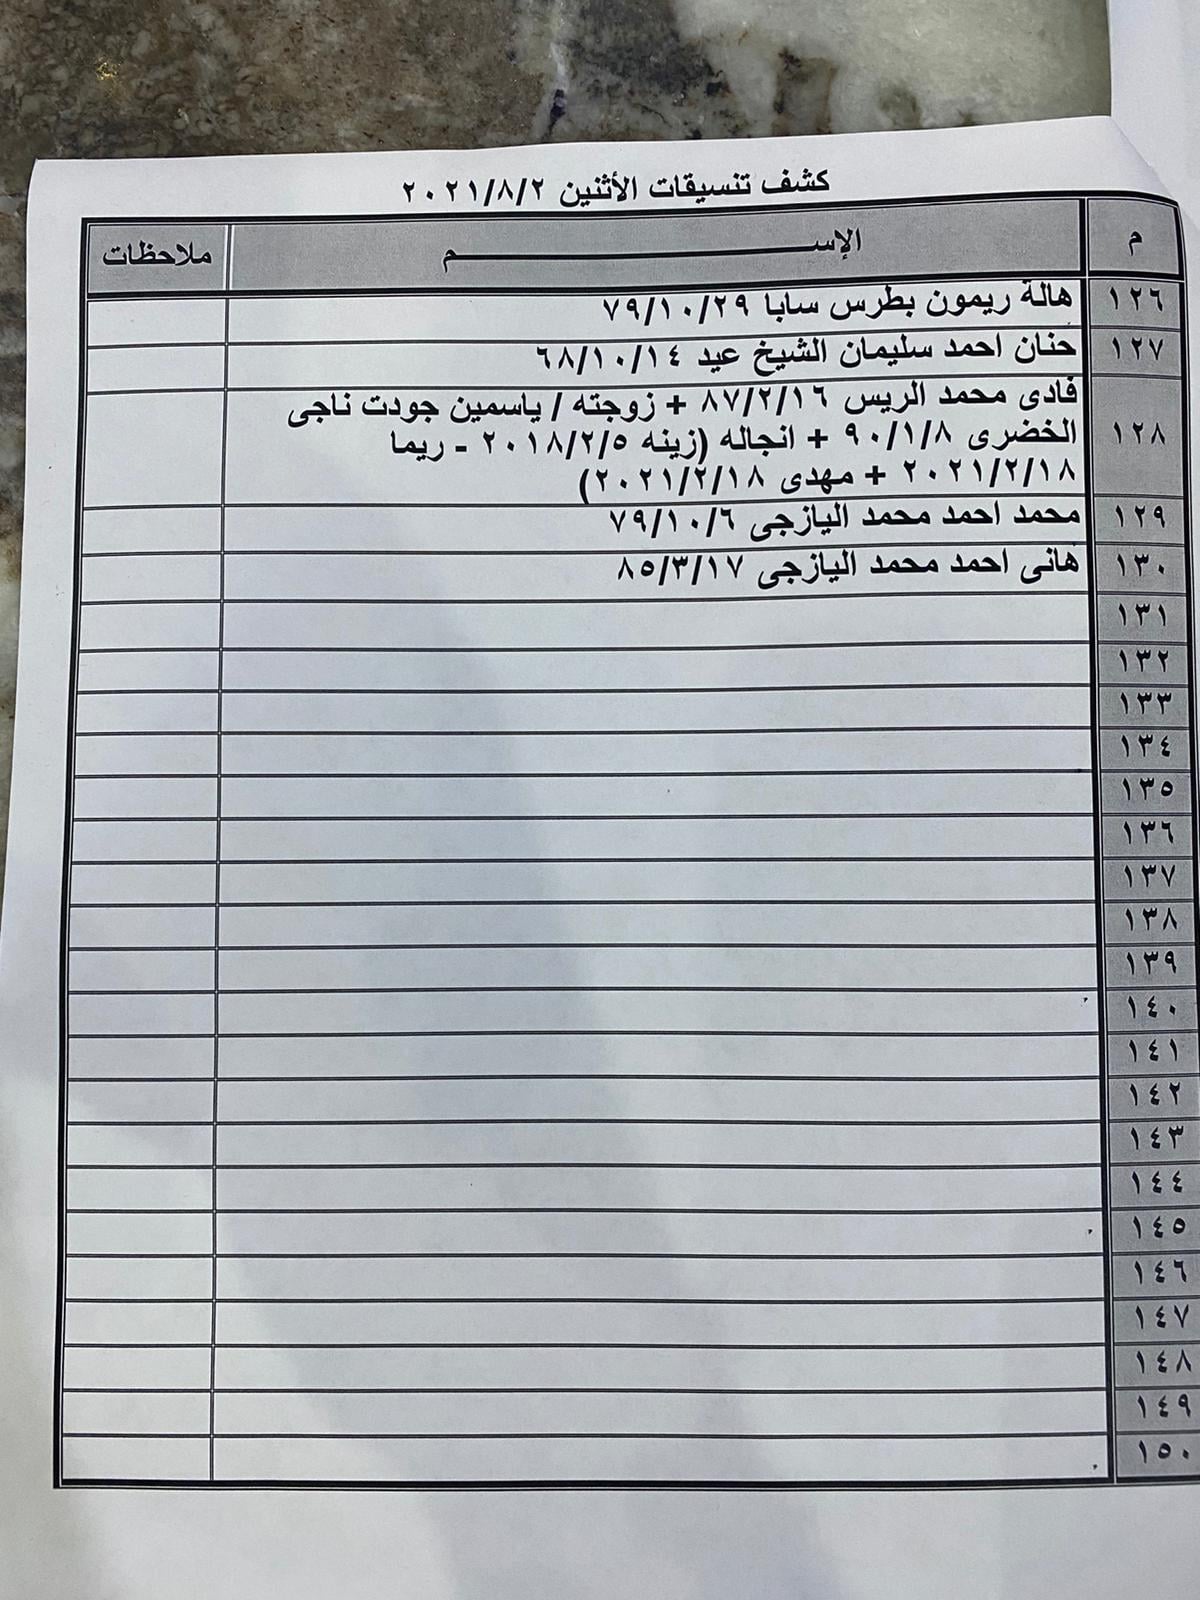 كشف تنسيقات الأثنين ٢٠٢١/٨/٢
م الإســــــــم ملاحظات
١٢٦ هالة ريمون بطرس سابا ٧٩/١٠/٢٩
١٢٧ حنان احمد سليمان الشيخ عيد ٦٨/١٠/١٤
١٢٨ فادى محمد الريس ٨٧/٢/١٦ + زوجته / ياسمين جودت ناجى
الخضرى ٩٠/١/٨ + انجاله (زينه ٢٠١٨/٢/٥ - ريما
٢٠٢١/٢/١٨ + مهدى ٢٠٢١/٢/١٨)
١٢٩ محمد احمد محمد اليازجى ٧٩/١٠/٦
١٣٠ هانى احمد محمد اليازجى ٨٥/٣/١٧
١٣١
١٣٢
١٣٣
١٣٤
١٣٥
١٣٦
١٣٧
١٣٨
١٣٩
١٤٠
١٤١
١٤٢
١٤٣
١٤٤
١٤٥
١٤٦
١٤٧
١٤٨
١٤٩
١٥٠